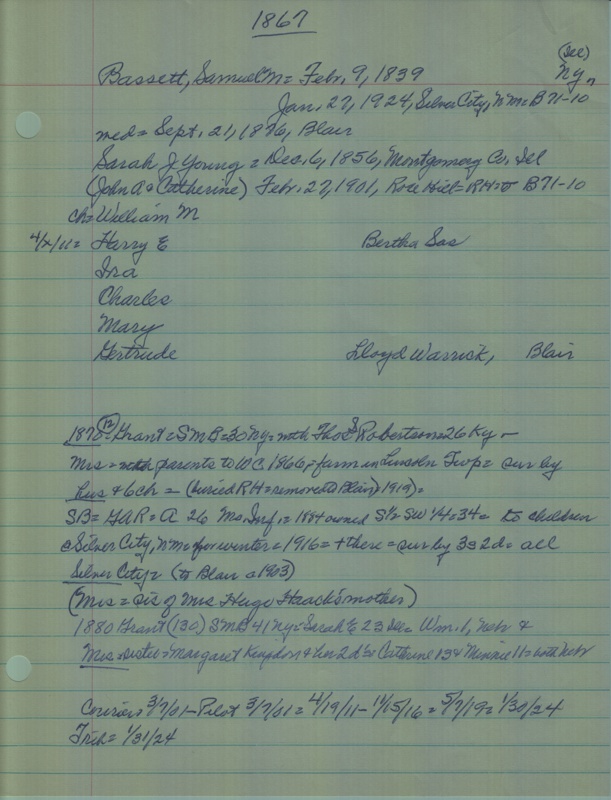 1867
(Sec)
Bassett, Samuel M = Feb. 9, 1839 Ny
Jan. 27, 1924, Silver City, N M = B 71-10
med = Sept. 21, 1876, Blair
Sarah J Young = Dec. 6, 1856, Montgomery Co. Ill
(John A & Catherine) Feb. 27, 1901, Rose Hill = RH = B 71-10
Ch = William M
4/x/11 = Harry E Bertha Sas
Ira
Charles
Mary
Gertrude Lloyd Warrick, Blair
1870 (12) Grant = SMB = 30 Ny = with Thos S Robertson = 26 Ky -
Mrs = with parents to WC 1866 = farm in Lincoln Twp = sur by
hus & 6 ch = (buried RH = removed to Blair 1919) =
SB = GAR = A 26 Mo. Inf. = 1884 owned S½ SW ¼ = 34 = to children
@ Silver City, N M for winter = 1916 = + there = sur by 3s 2d = all
Silver City = (to Blair a 1903)
(Mrs = sis of Mrs Hugo Haack's mother)
1880 Grant (130) SMB 41 Ny = Sarah 23 = Wm. 1, Nebr &
Mrs sister = Margaret Kingdon & her 2d = Catherine 13 & Minnie 11 = both Nebr
Courier 3/7/01 - Pilot 3/7/01 = 4/19/11 - 11/15/16 = 5/7/19 = 1/30/24
Trib = 1/31/24